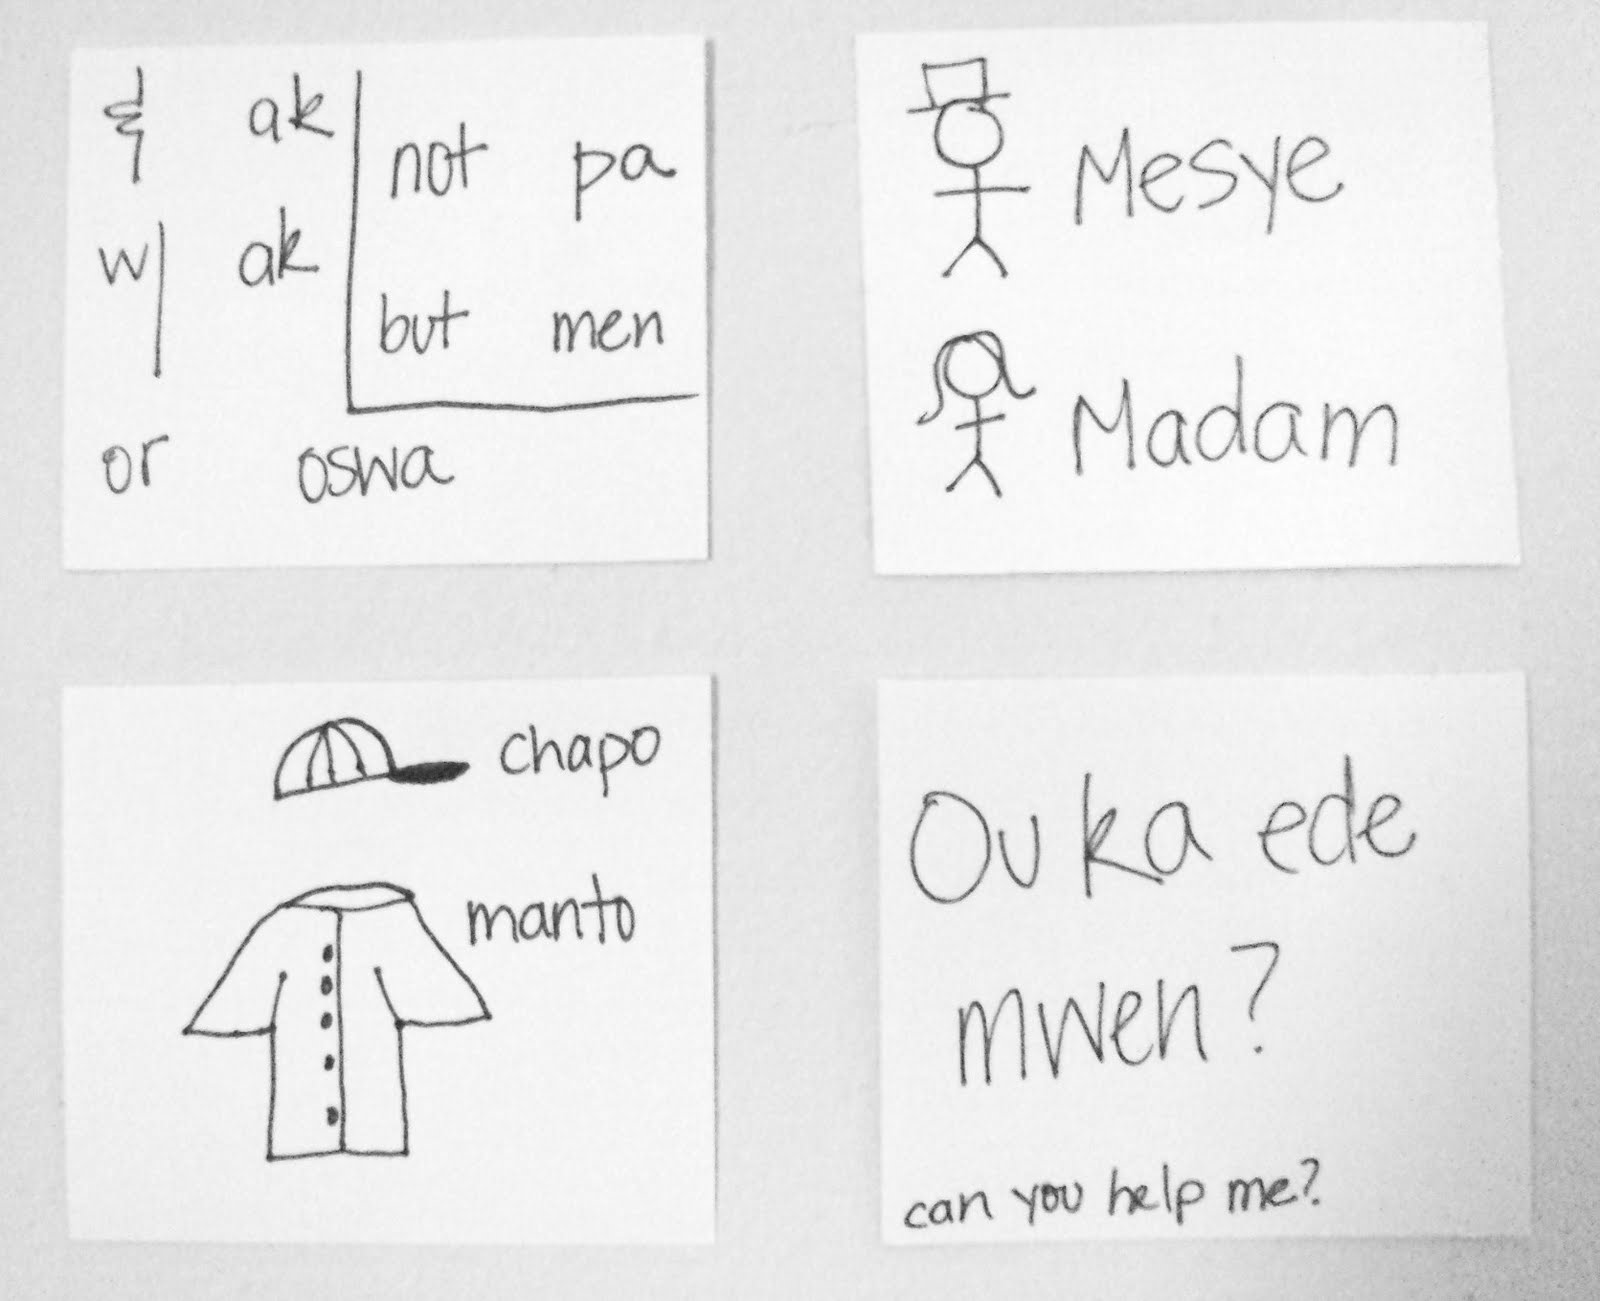 & ak
w/ ak
not pa
but men
or oswa
Mesye
Madam
chapo
manto
Ou ka ede
mwen?
can you help me?